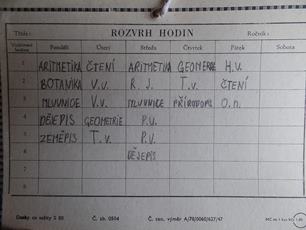 ROZVRH HODIN
Třída: Ročník:
Vyučovací hodina Pondělí Úterý Středa Čtvrtek Pátek Sobota
1 ARITMETIKA ČTENÍ ARITMETIKA GEOMETRIE H.V.
2 BOTANIKA V.V. R.J. T.V. ČTENÍ
3 MLUVNICE V.V. MLUVNICE PŘÍRODOPIS O.N.
4 DĚJEPIS GEOMETRIE P.V.
5 ZEMĚPIS T.V. P.V.
6 DĚJEPIS
7
8
Desky na sešity S 80 Č. zb. 0504 Č. cen. výměr A/78/0060/627/47